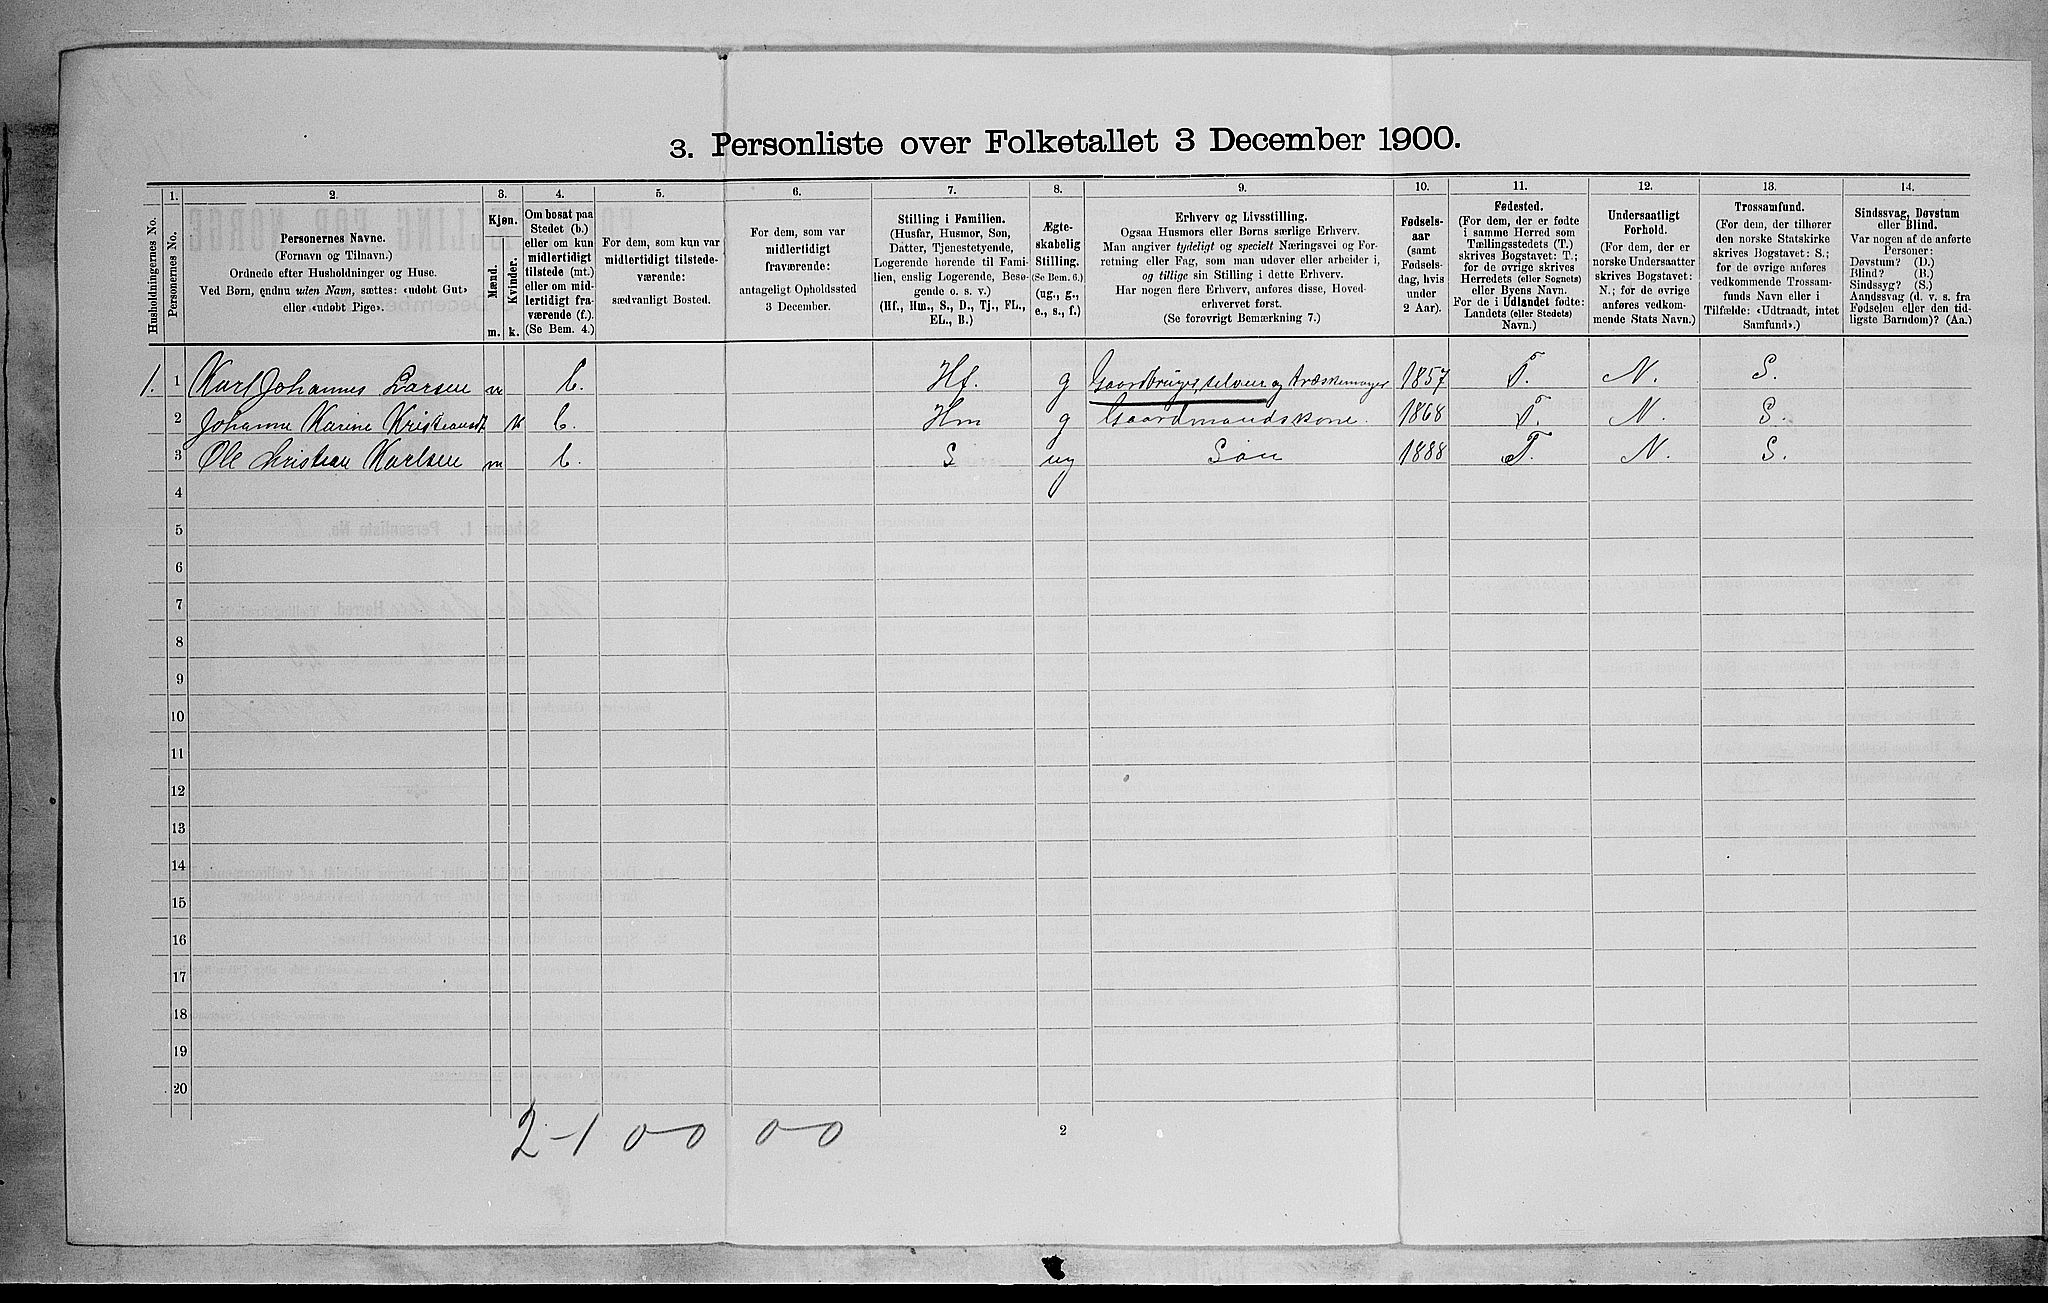 3. Personliste over Folketallet 3 December 1900.
Husholdningernes No.
1.
Personernes No.
2.
Personernes Navne.
(Fornavn og Tilnavn.)
Ordnede efter Husholdninger og Huse.
Ved Børn, endnu uden Navn, sættes: «udøbt Gut»
eller «udøbt Pige».
3.
Kjøn.
Mænd.
Kvinder.
m.
k.
4.
Om bosat paa
Stedet (b.)
eller om kun
midlertidigt
tilstede (mt.)
eller om mid-
lertidigt fra-
værende (f.).
(Se Bem. 4.)
5.
For dem, som kun var
midlertidigt tilstede-
værende:
sædvanligt Bosted.
6.
For dem, som var
midlertidigt
fraværende:
antageligt Opholdssted
3 December.
7.
Stilling i Familien.
(Husfar, Husmor, Søn,
Datter, Tjenestetyende,
Logerende hørende til Fami-
lien, enslig Logerende, Besø-
gende o. s. v.)
(Hf., Hm., S., D., Tj., FL.,
EL., B.)
8.
Ægte-
skabelig
Stilling.
(Se Bem. 6.)
(ug., g.,
e., s., f.)
9.
Erhverv og Livsstilling.
Ogsaa Husmors eller Børns særlige Erhverv.
Man angiver tydeligt og specielt Næringsvei og For-
retning eller Fag, som man udøver eller arbeider i,
og tillige sin Stilling i dette Erhverv.
Har nogen flere Erhverv, anføres disse, Hoved-
erhvervet først.
(Se forøvrigt Bemærkning 7.)
10.
Fødsels-
aar
(samt
Fødsels-
dag, hvis
under
2 Aar).
11.
Fødested.
(For dem, der er fødte
i samme Herred som
Tællingsstedets (T.)
skrives Bogstavet: T.;
for de øvrige skrives
Herredets (eller Sognets)
eller Byens Navn.
For de i Udlandet fødte:
Landets (eller Stedets)
Navn.)
12.
Undersaatligt
Forhold.
(For dem, der er
norske Undersaatter
skrives Bogstavet:
N.; for de øvrige
anføres vedkom-
mende Stats Navn.)
13.
Trossamfund.
(For dem, der tilhører
den norske Statskirke
skrives Bogstavet: S.;
for de øvrige anføres
vedkommende Trossam-
funds Navn eller i
Tilfælde: «Udtraadt, intet
Samfund».)
14.
Sindssvag, Døvstum
eller Blind.
Var nogen af de anførte
Personer:
Døvstum? (D.)
Blind? (B.)
Sindssyg? (S.)
Aandssvag (d. v. s. fra
Fødselen eller den tid-
ligste Barndom)? (Aa.)
1. 1 Karl Johannes Larsen m b. Hf. g Gaardbruger, selveier og træskeninger 1857 T. N. S.
2 Johanne Karine Kristiansdt. k b. Hm g Gaardmandskone. 1868 T. N. S.
3 Ole Kristian Karlsen m b. S ug Søn 1888 T. N. S.
4
5
6
7
8
9
10
11
12
13
14
15
16
17
18
19
20
2-1 0-0 0-0
2